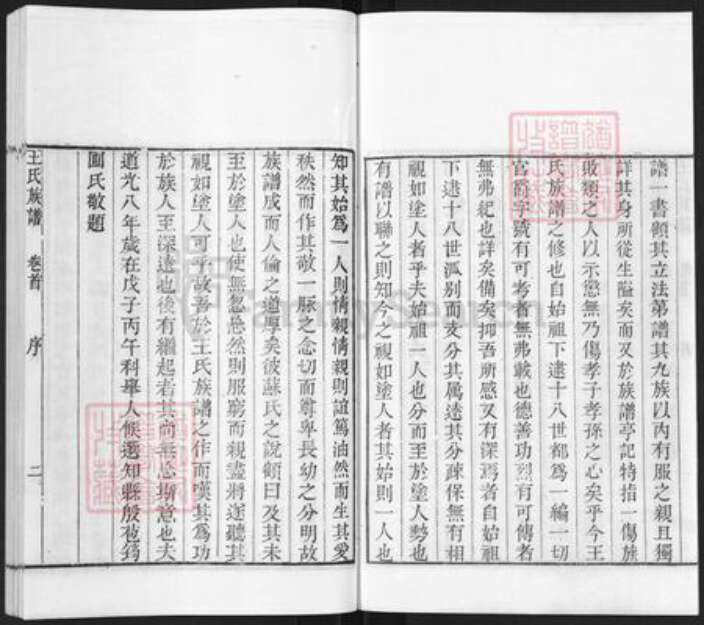 譜一書顧其立法第譜其九族以內有服之親且獨
詳其身所從生隘矣而又於族譜亭記特指一傷族
敗類之人以示懲無乃傷孝子孝孫之心矣乎今王
氏族譜之修也自始祖下逮十八世都為一編一切
官爵字號有可考者無弗載也德善功烈有可傳者
無弗紀也詳矣備矣抑吾所感又有深焉者自始祖
下逮十八世派別而支分其属逺其分疎保無有相
視如塗人者乎夫始祖一人也分而至於塗人勢也
有譜以聯之則知今之視如塗人者其始則一人也
知其始爲一人則情親情親則誼篤油然而生其愛
秩然而作其敬一脈之念切而尊卑長幼之分明故
族譜成而人倫之道厚矣彼蘇氏之說顧曰及其未
至於塗人也使無忽忘然則服窮而親盡將遂聽其
視如塗人可乎故吾於王氏族譜之作而嘆其爲功
於族人至深遠也後有繼起者其尚無忘斯意也夫
道光八年歲在戊子丙午科舉人候選知縣殷苞筠
圃氏敬題
王氏族譜 卷首 序 二
FamilySearch